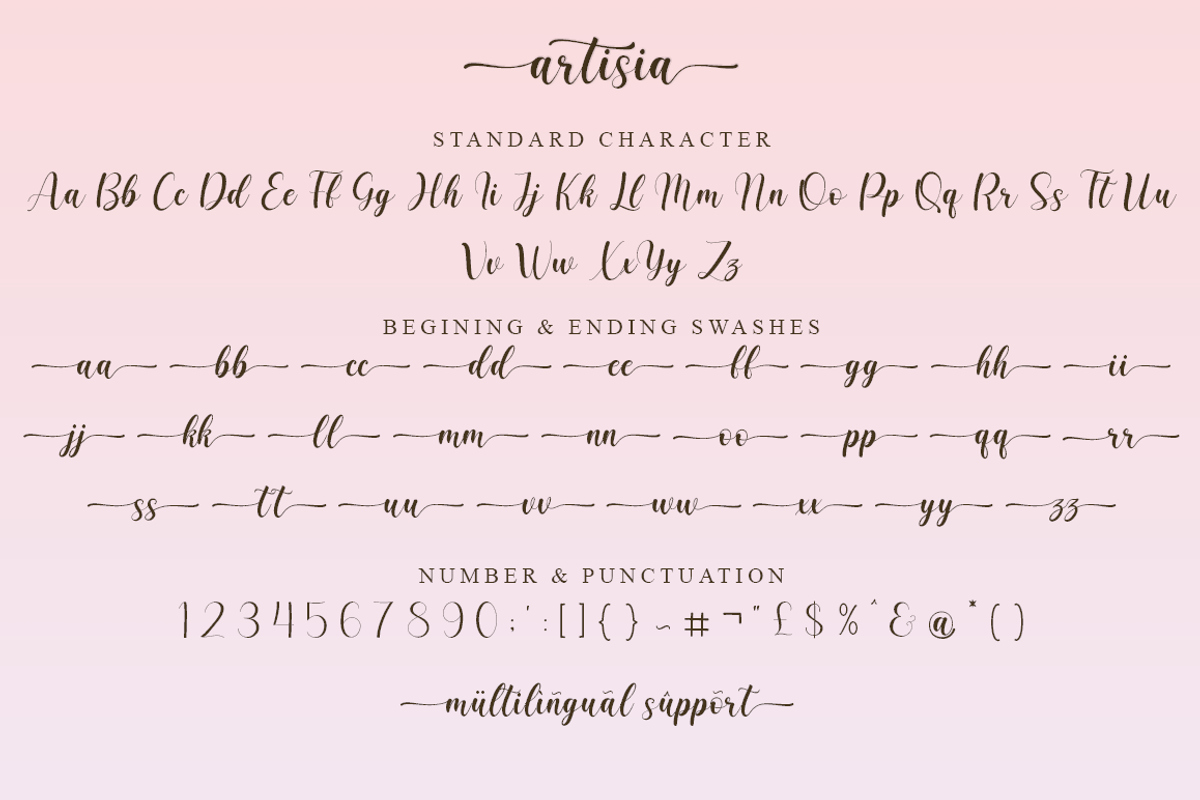 artisia
STANDARD CHARACTER
Aa Bb Cc Dd Ee Ff Gg Hh Ii Jj Kk Ll Mm Nn Oo Pp Qq Rr Ss Tt Uu
Vv Ww Xx Yy Zz
BEGINING & ENDING SWASHES
aa bb cc dd ee ff gg hh ii
jj kk ll mm nn oo pp qq rr
ss tt uu vv ww xx yy zz
NUMBER & PUNCTUATION
1 2 3 4 5 6 7 8 9 0 ; ' : [ ] { } ~ # ¬ " £ $ % ^ & @ * ( )
mültilìñguãl sûppõrt